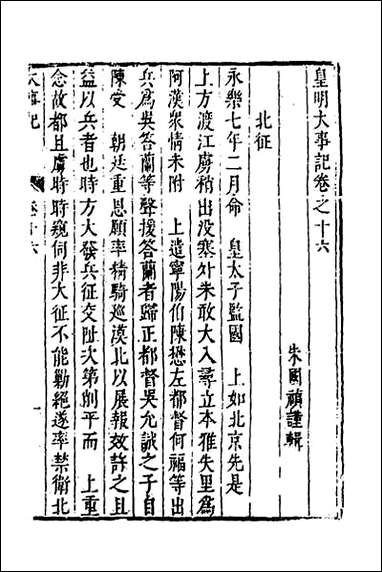 皇明大事記卷之十六
朱國禎謹輯
北征
永樂七年二月命　皇太子監國　上如北京先是
上方渡江虜稍出沒塞外未敢大入尋立本雅失里爲
阿漢衆情未附　上遣寧陽伯陳懋左都督何福等出
兵爲吳答蘭等聲援答蘭者歸正都督吳允誠之子自
陳受　朝廷重恩願率精騎巡漠北以展報效許之且
益以兵者也時方大發兵征交阯次第削平而　上重
念故都且虜時時窺伺非大征不能勦絕遂率禁衛北
大事記
卷十六
一